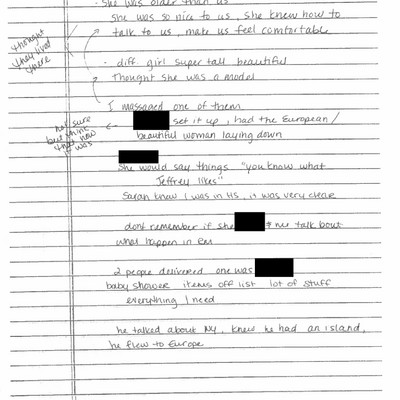 she was older than us
she was so nice to us, she knew how to
talk to us, make us feel comfortable
thought
they lived
there
· diff girl super tall beautiful
thought she was a model
I massaged one of them
set it up, had the European/
beautiful woman laying down
not sure
but think
that how
it was
She would say things "you know what
Jeffrey likes"
Sarah knew I was in HS, it was very clear
dont remember if she & me talk bout
what happen in rm
2 people delivered one was
baby shower items off list lot of stuff
everything I need
he talked about NY, knew he had an island,
he flew to Europe